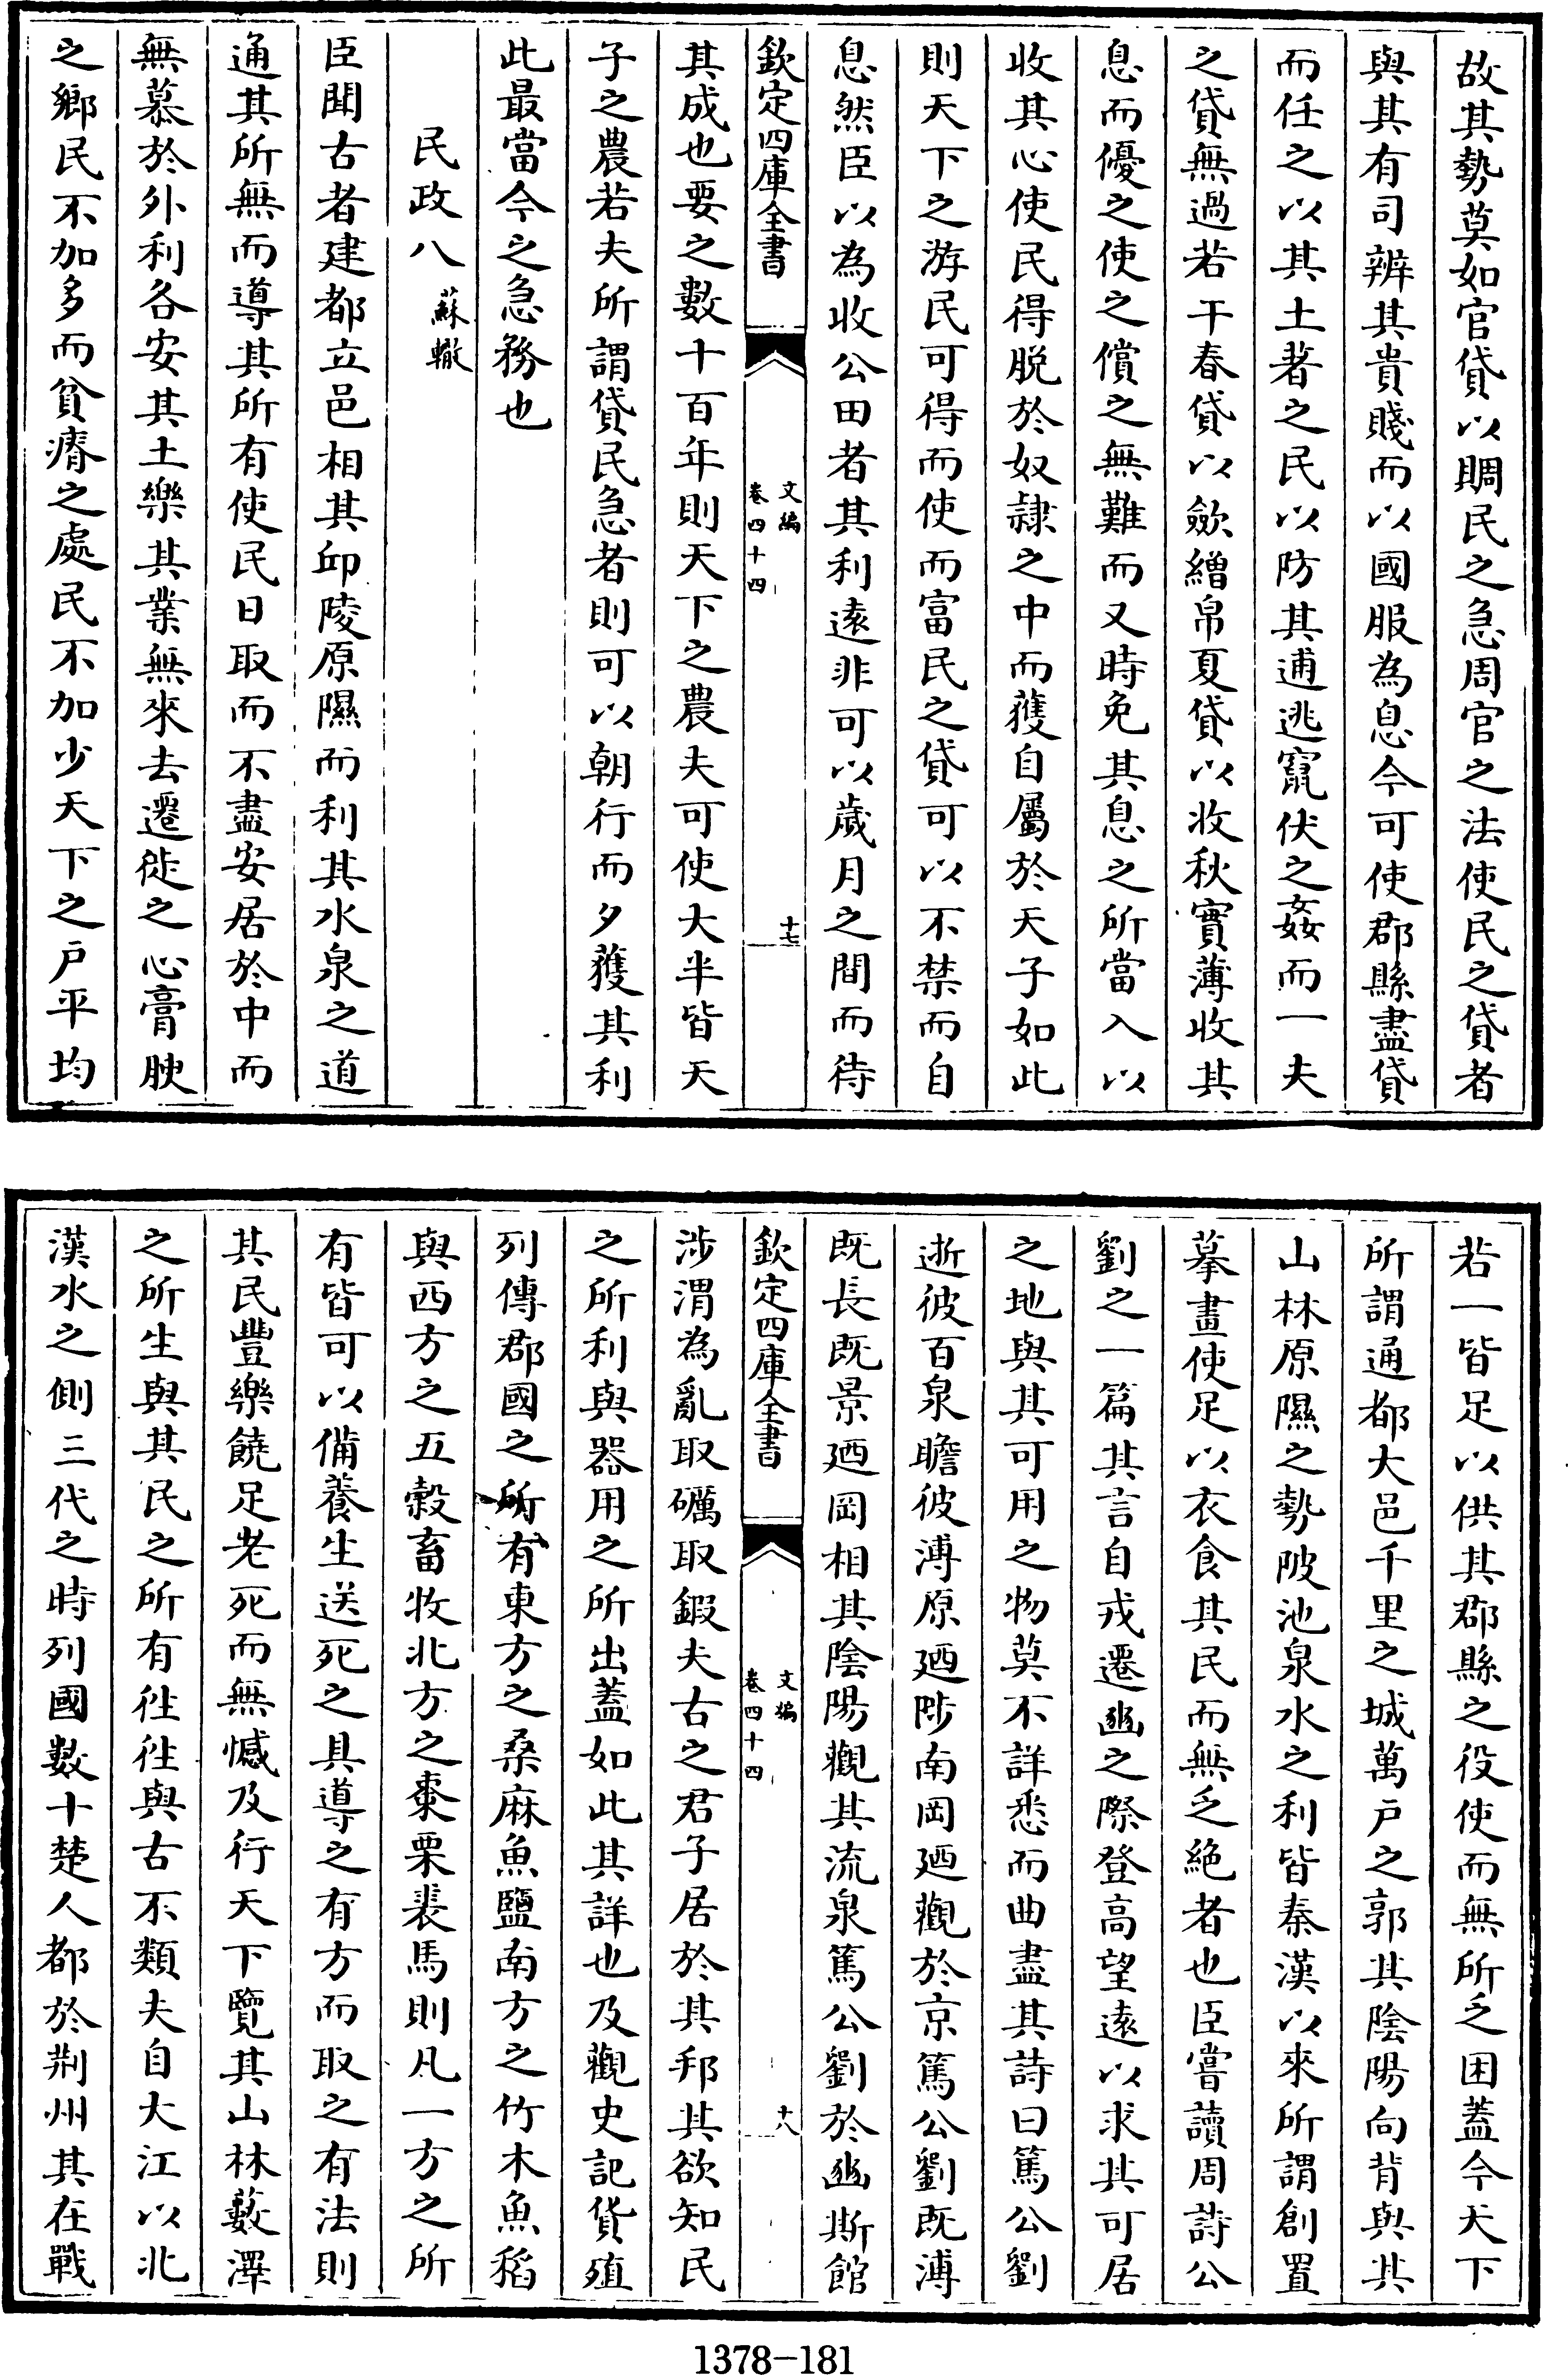 故其勢莫如官貸以賙民之急周官之法使民之貸者
與其有司辨其貴賤而以國服為息今可使郡縣盡貸
而任之以其土著之民以防其逋逃竄伏之姦而一夫
之貸無過若干春貸以斂繒帛夏貸以收秋實薄收其
息而優之使之償之無難而又時免其息之所當入以
收其心使民得脱於奴隷之中而獲自屬於天子如此
則天下之游民可得而使而富民之貸可以不禁而自
息然臣以為收公田者其利遠非可以歲月之間而待
欽定四庫全書
文編
卷四十四
十七
其成也要之數十百年則天下之農夫可使大半皆天
子之農若夫所謂貸民急者則可以朝行而夕獲其利
此最當今之急務也
民政八 蘇轍
臣聞古者建都立邑相其邱陵原隰而利其水泉之道
通其所無而導其所有使民日取而不盡安居於中而
無慕於外利各安其土樂其業無來去遷徙之心膏腴
之鄉民不加多而貧瘠之處民不加少天下之戶平均
若一皆足以供其郡縣之役使而無所乏困蓋今天下
所謂通都大邑千里之城萬戶之郭其陰陽向背與其
山林原隰之勢陂池泉水之利皆秦漢以來所謂創置
摹畫使足以衣食其民而無乏絶者也臣嘗讀周詩公
劉之一篇其言自戎遷豳之際登高望遠以求其可居
之地與其可用之物莫不詳悉而曲盡其詩曰篤公劉
逝彼百泉瞻彼溥原廼陟南岡廼觀於京篤公劉既溥
既長既景廼岡相其陰陽觀其流泉篤公劉於豳斯館
欽定四庫全書
文編
卷四十四
十八
涉渭為亂取礪取鍛夫古之君子居於其邦其欲知民
之所利與器用之所出蓋如此其詳也及觀史記貨殖
列傳郡國之所有東方之桑麻魚鹽南方之竹木魚稻
與西方之五穀畜牧北方之棗栗裘馬則凡一方之所
有皆可以備養生送死之具導之有方而取之有法則
其民豐樂饒足老死而無憾及行天下覽其山林藪澤
之所生與其民之所有往往與古不類夫自大江以北
漢水之側三代之時列國數十楚人都於荆州其在戰
1378-181